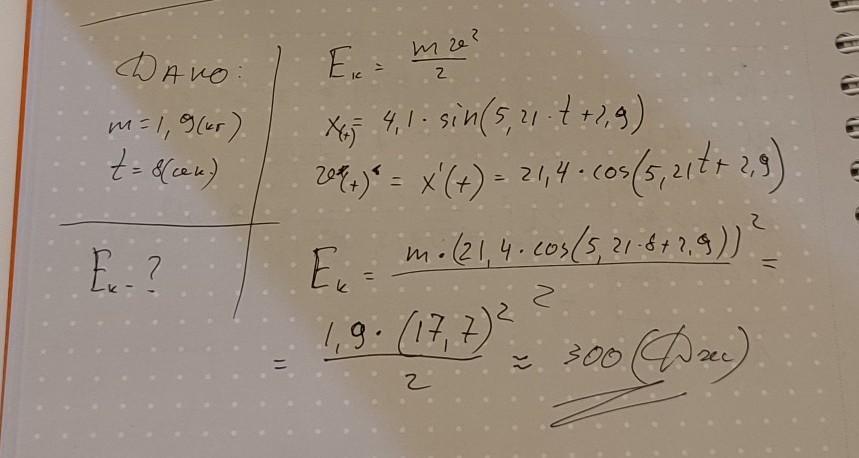 Дано:
m = 1,9(кг)
t = 8(сек)
Eк - ?
Eк = mv²/2
x(t) = 4,1 · sin(5,21 · t + 2,9)
v(t) = x'(t) = 21,4 · cos(5,21t + 2,9)
Eк = m · (21,4 · cos(5,21 · 8 + 2,9))²/2 =
= 1,9 · (17,7)²/2 ≈ 300 (Дж)